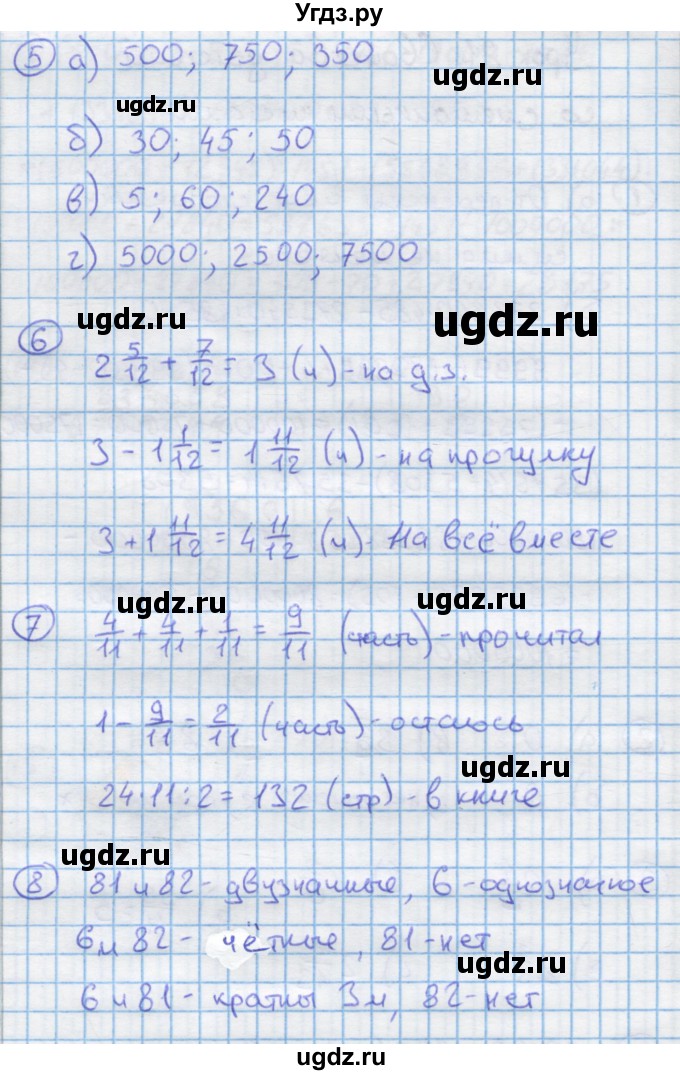 Угдз.ру
5 а) 500; 750; 350
ugdz.ru
ugdz.ru
б) 30; 45; 50
в) 5; 60; 240
г) 5000; 2500; 7500
ugdz.ru ugdz.ru
6 2 5/12 + 7/12 = 3 (ч) - на д.з.
3 - 1 1/12 = 1 11/12 (ч) - на прогулку
ugdz.ru
3 + 1 11/12 = 4 11/12 (ч) - На всё вместе
ugdz.ru ugdz.ru
7 4/11 + 4/11 + 1/11 = 9/11 (часть) - прочитал
1 - 9/11 = 2/11 (часть) - осталось
ugdz.ru
24·11:2 = 132 (стр) - в книге
ugdz.ru
8 81 и 82 - двузначные, 6 - однозначное
6 и 82 - чётные, 81 - нет
ugdz.ru
6 и 81 - кратны 3м, 82 - нет
ugdz.ru